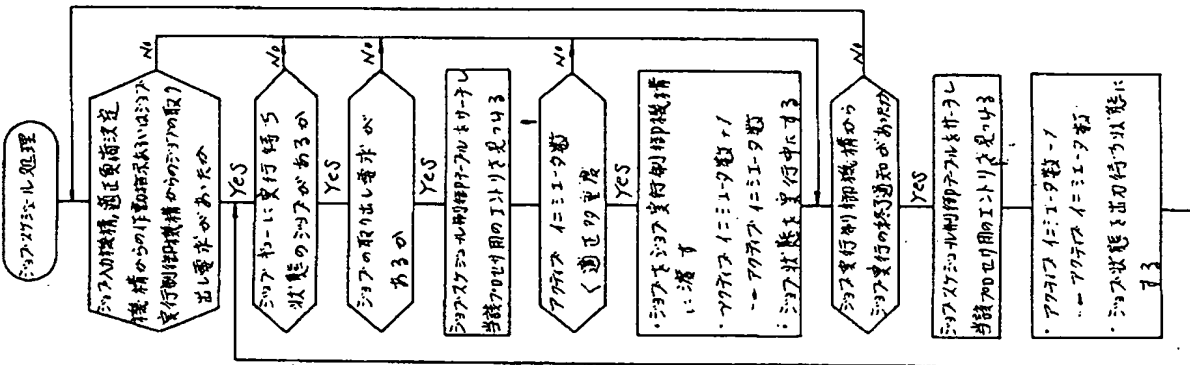 ジョブスケジュール処理
ジョブ入力機構,適正負荷決定
機構からの作動指示あるいはジョブ
実行制御機構からのジョブの取り
出し要求があったか
No
Yes
ジョブキューに実行待ち
状態のジョブがあるか
No
Yes
ジョブの取り出し要求が
あるか
No
Yes
ジョブスケジュール制御テーブルをサーチし
当該プロセサ用のエントリを見つける
アクティブイニシエータ数
<適正多重度
No
Yes
・ジョブをジョブ実行制御機構
に渡す
・アクティブイニシエータ数+1
→アクティブイニシエータ数
・ジョブ状態を実行中にする
ジョブ実行制御機構から
ジョブ実行の終了通知があったか
No
Yes
ジョブスケジュール制御テーブルをサーチし
当該プロセサ用のエントリを見つける
・アクティブイニシエータ数-1
→アクティブイニシエータ数
・ジョブ状態を出力待ち状態に
する